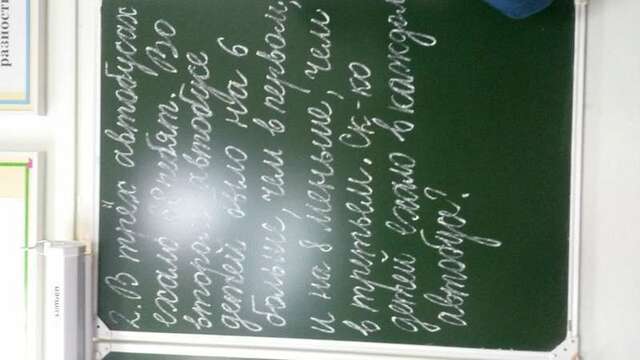 2. В трёх автобусах
ехало ребят. Во
втором автобусе
детей было на 6
больше, чем в первом,
и на 8 меньше, чем
в третьем. Ск-ко
детей ехало в каждом
автобусе?
разност